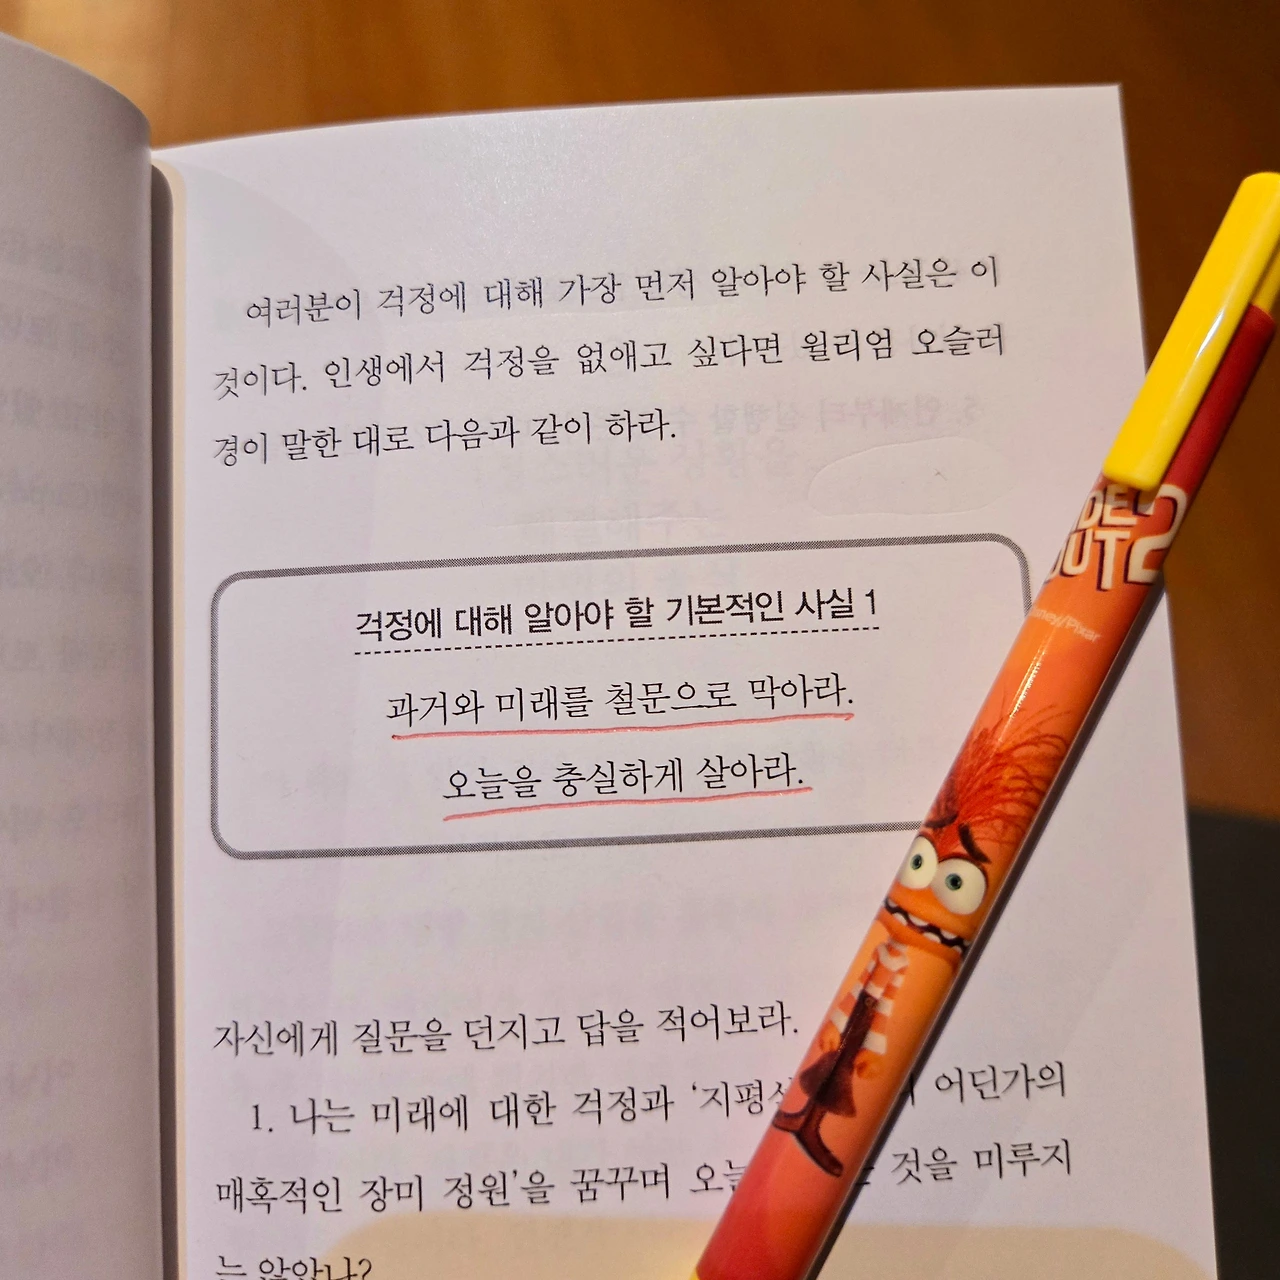 여러분이 걱정에 대해 가장 먼저 알아야 할 사실은 이
것이다. 인생에서 걱정을 없애고 싶다면 윌리엄 오슬러
경이 말한 대로 다음과 같이 하라.
걱정에 대해 알아야 할 기본적인 사실 1
과거와 미래를 철문으로 막아라.
오늘을 충실하게 살아라.
자신에게 질문을 던지고 답을 적어보라.
1. 나는 미래에 대한 걱정과 ‘지평선 어딘가의
매혹적인 장미 정원’을 꿈꾸며 오늘 것을 미루지
는 않았나?
DE
OUT 2
Disney/Pixar